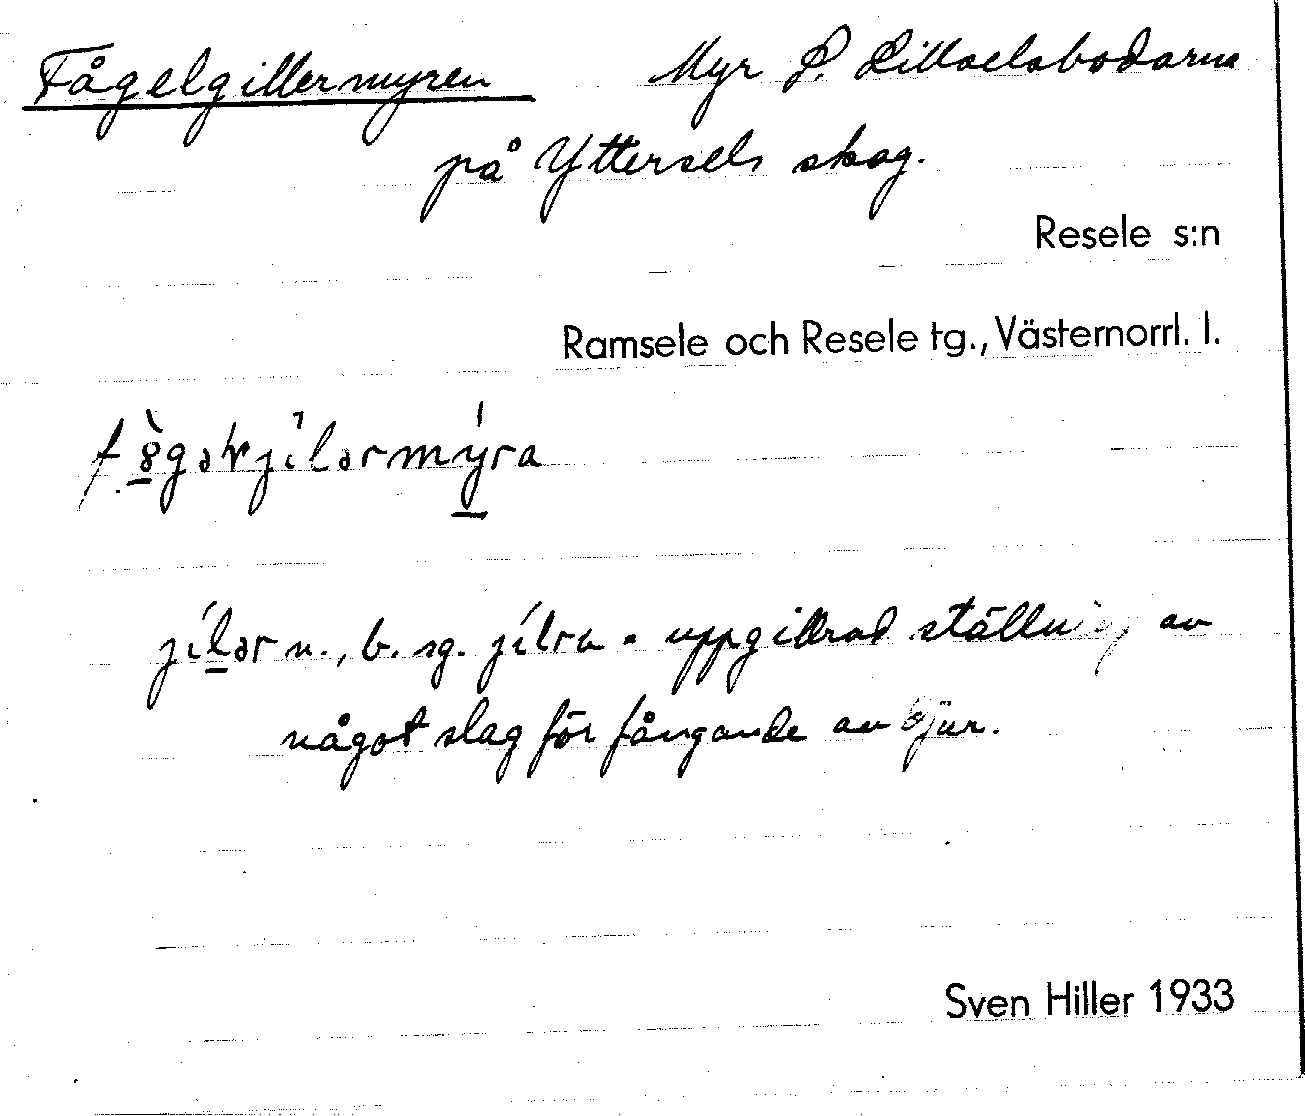 Fågelgillermyren Myr S. Lillselsbodarna
på Yttersels skog.
Resele s:n
Ramsele och Resele tg., Västernorrl. l.
jilər n., b. sg. jilra = uppgillrad ställning av
något slag för fångande av djur.
Sven Hiller 1933